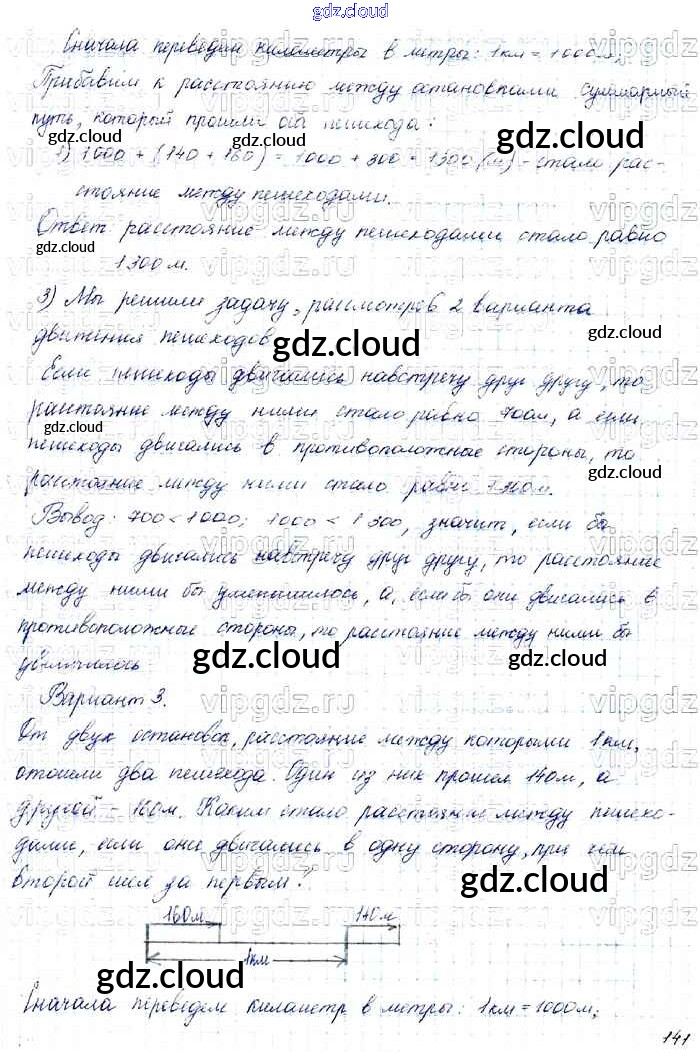 gdz.cloud
Сначала переведем километры в метры: 1км = 1000м;
Прибавим к расстоянию между остановками суммарный
путь, который прошли оба пешехода:
1) 1000 + (140 + 160) = 1000 + 300 = 1300 (м) - стало рас-
стояние между пешеходами.
Ответ: расстояние между пешеходами стало равно
1300 м.
3) Мы решили задачу, рассмотрев 2 варианта
движения пешеходов
Если пешеходы двигались навстречу друг другу, то
расстояние между ними стало равно 700м, а если
пешеходы двигались в противоположные стороны, то
расстояние между ними стало равно 1300м.
Вывод: 700 < 1000; 1000 < 1300, значит, если бы
пешеходы двигались навстречу друг другу, то расстояние
между ними бы уменьшилось, а, если бы они двигались в
противоположные стороны, то расстояние между ними бы
увеличилось
Вариант 3.
От двух остановок, расстояние между которыми 1км,
отошли два пешехода. Один из них прошел 140м, а
другой - 160м. Каким стало расстояние между пешехо-
дами, если они двигались в одну сторону, при чем
второй шел за первым?
160м 140м
1км
Сначала переведем километр в метры: 1км = 1000м;
141